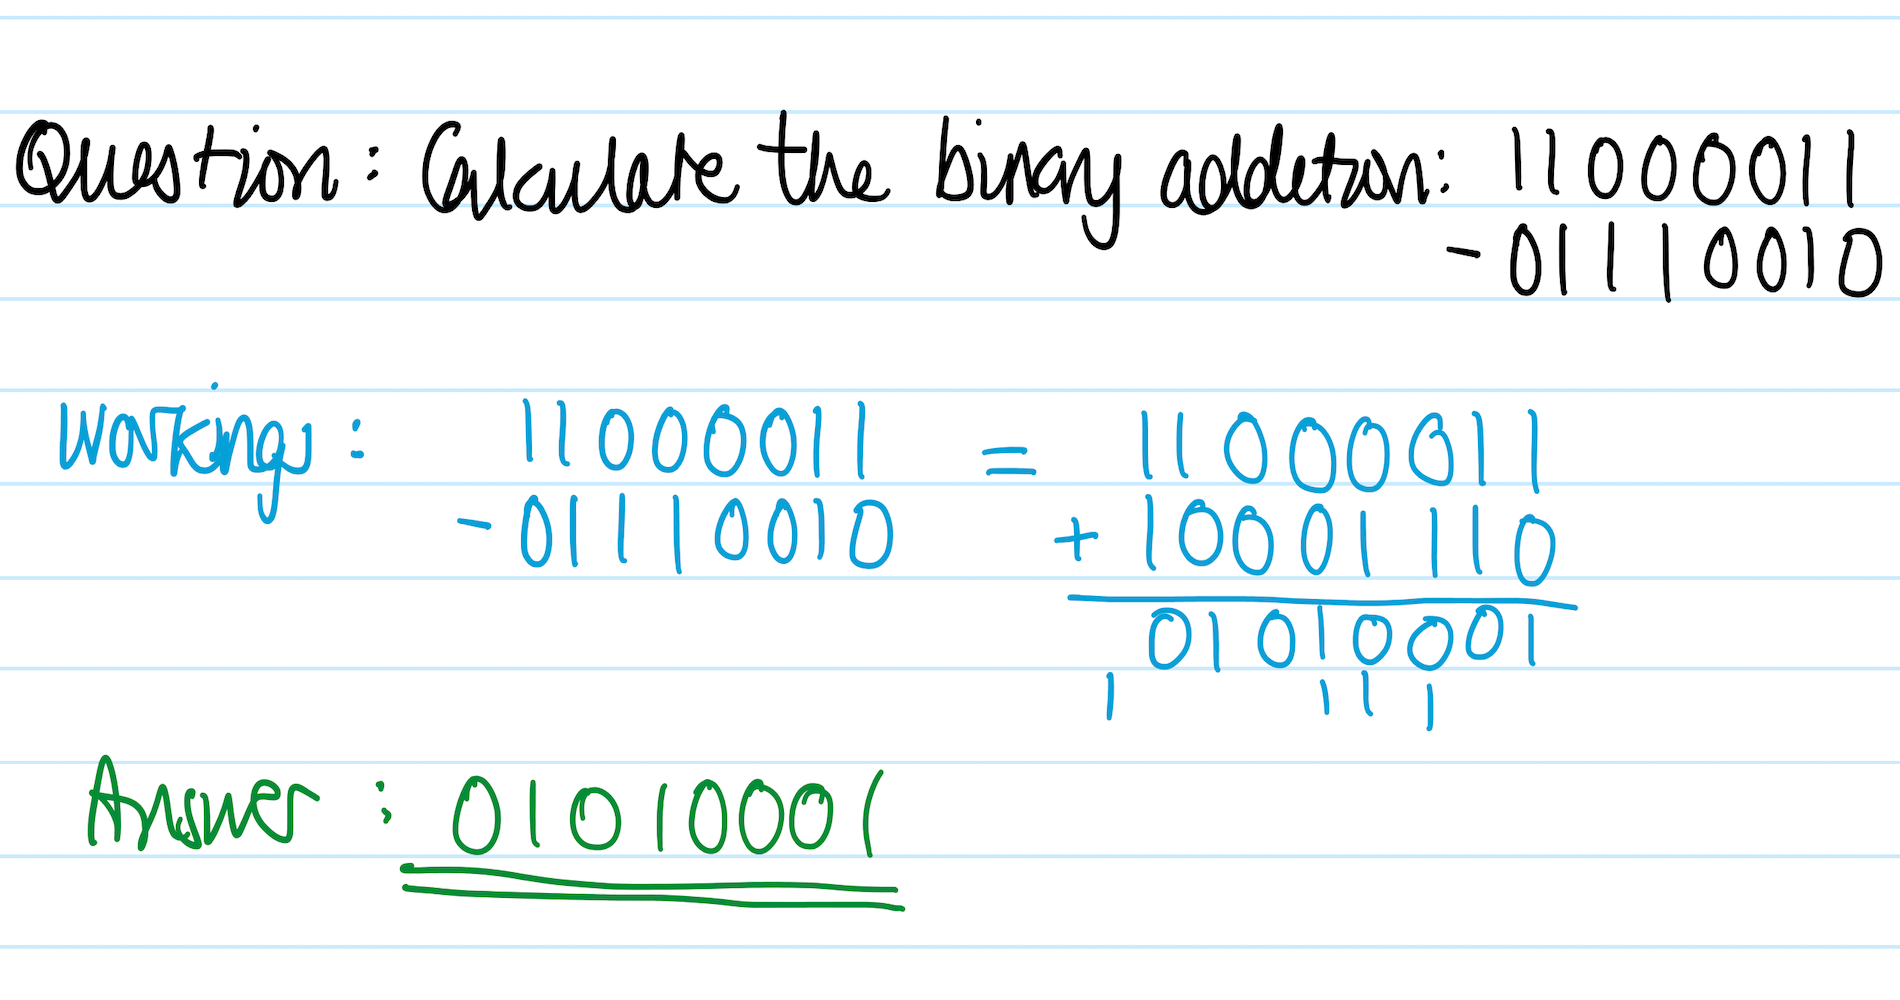 Question: Calculate the binary addetion: 11000011
- 01110010
Workings: 11000011 = 11000011
- 01110010 + 10001110
01010001
1 1 1 1
Answer: 01010001